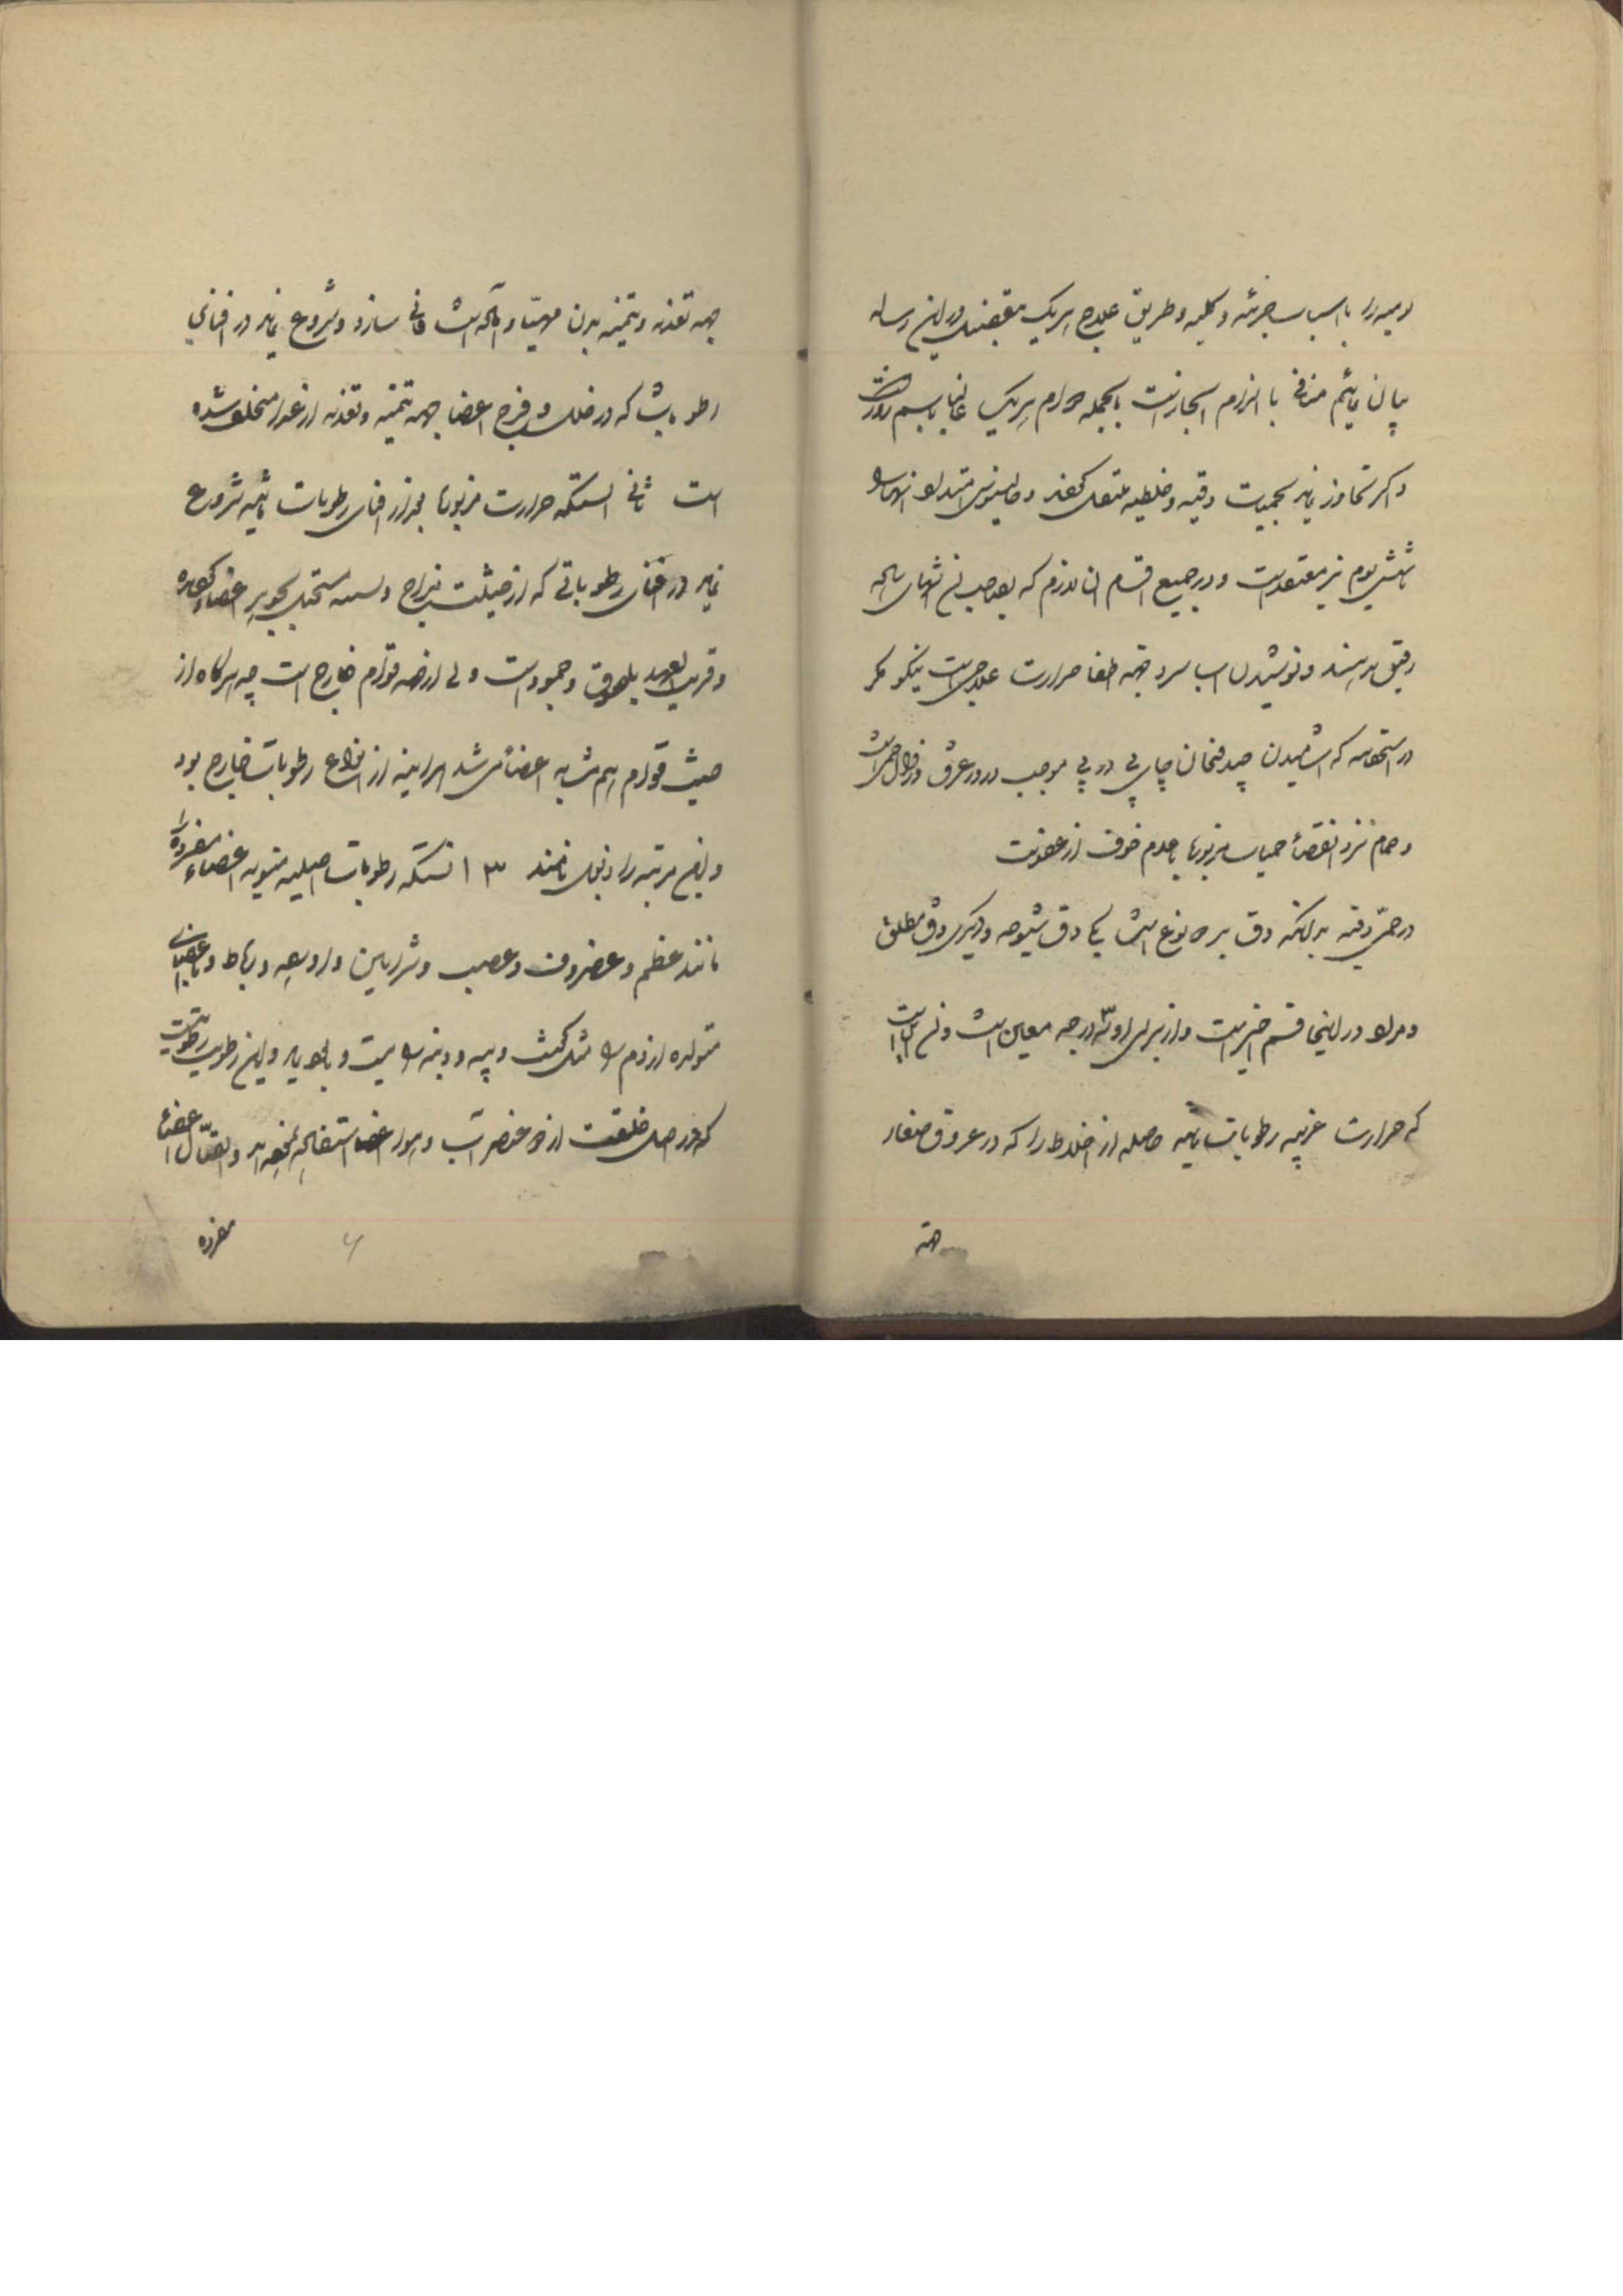 یومیه را با اسباب جزئیه و کلیه و طریق علاج هریک بتفصیل در این رساله
بیان نمائیم منافی با التزام ایجاز است بالجمله دوام هریک غالبا بسه روز است
و اگر تجاوز نماید بحمیات دقیه و خلطیه منتقل کنند و جالینوس امتداد او را
تا شش یوم نیز معتقد است و در جمیع اقسام آن لازم که بعد
رقیق دهند و نوشیدن آب سرد جهة اطفا حرارت علاجی است نیکو مگر
در استحصافیه که آشامیدن چند فنجان چای پی در پی موجب درور عرق و زوال حمی است
و حمام نزد انقضاء حمیات مزبوره با عدم خوف از عفونت
در حمی دقیه بدانکه دق بر دو نوع است یکی دق شیخوخه و دیگری دق مطلق
و مراد در اینجا قسم اخیر است و از برای او سه درجه معین است و آن این است
که حرارت غریبه رطوبات ثانیه حاصله از اخلاط را که در عروق صغار
جهة
جهة تغذیه و تنمیه بدن مهیا و آماده است فانی سازد و شروع نماید در افنای
رطوباتی که در خلل و فرج اعضا جهة تنمیه و تغذیه از غذا متخلف شده
است ثانی آنستکه حرارت مزبوره بعد از افنای رطوبات ثانیه شروع
نماید در افنای رطوباتی که از حیثیت مزاج مستحیل بجوهر اعضاء گردیده
و قریب العهد بانعقاد و جمود است ولی از حد قوام خارج است چه هرگاه از
حیث قوام هم مشابه اعضا می شد هرآینه از انواع رطوبات خارج بود
و این مرتبه را ذبول نامند ۳ آنستکه رطوبات اصلیه منویه اعضاء مفرده را
مانند عظم و غضروف و عصب و شرائین و اورده و رباط و یا اعضای
متولده از دم را مثل گوشت و پیه و دنبه و این رطوبت رطوبتی است
که در اصل خلقت از دو عنصر آب و هوا و اتصال اعضاء
مفرده
۶